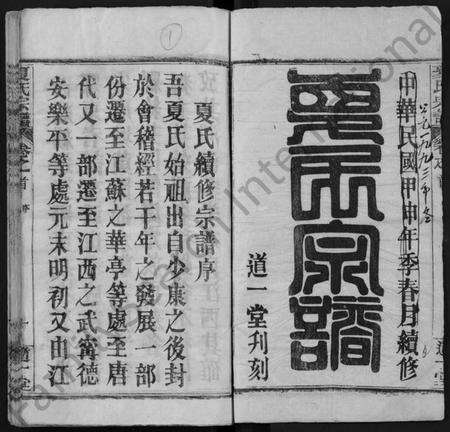 中華民國甲申年季春月續修
夏氏宗譜
道一堂刋刻
①
夏氏續修宗譜序
吾夏氏始祖出自少康之後封
於會稽經若干年之發展一部
份遷至江蘇之華亭等處至唐
代又一部遷至江西之武寗德
安樂平等處元末明初又由江
道一堂